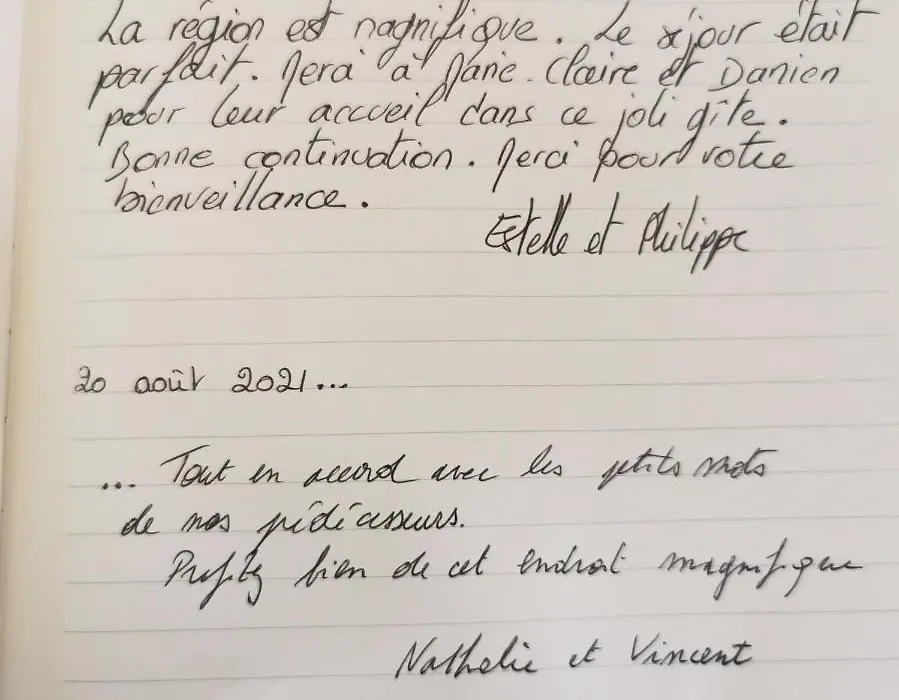 La région est magnifique. Le séjour était
parfait. Merci à Marie-Claire et Damien
pour leur accueil dans ce joli gîte.
Bonne continuation. Merci pour votre
bienveillance.
Estelle et Philippe
20 août 2021...
... Tout en accord avec les petits mots
de nos prédécesseurs.
Profitez bien de cet endroit magnifique
Nathalie et Vincent